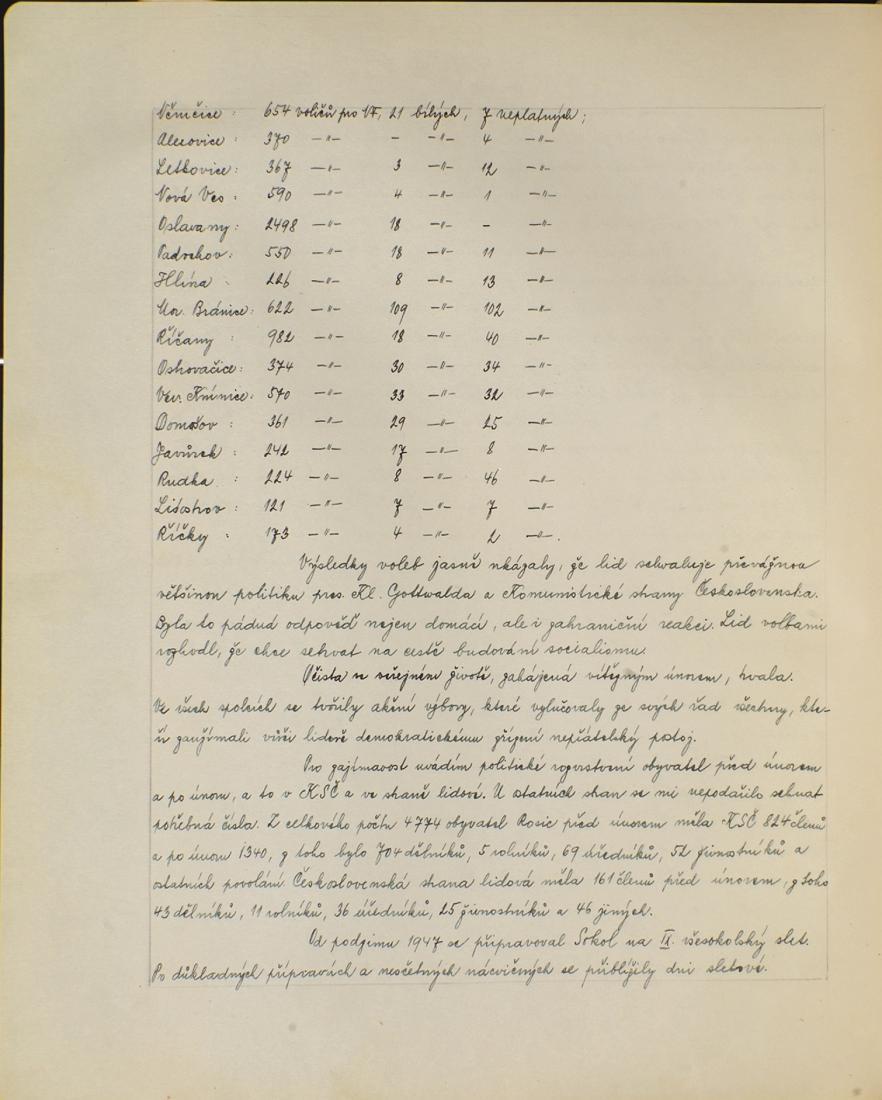 Němčice : 654 voličů pro NF, 21 bílých, 7 neplatných;
Alexovice : 370 —"— - —"— 4 —"—
Letkovice : 367 —"— 3 —"— 12 —"—
Nová Ves : 590 —"— 4 —"— 1 —"—
Oslavany : 2498 —"— 18 —"— - —"—
Padochov : 550 —"— 18 —"— 11 —"—
Hlína : 226 —"— 8 —"— 13 —"—
Mor. Bránice : 622 —"— 109 —"— 102 —"—
Říčany : 982 —"— 18 —"— 40 —"—
Ostrovačice : 374 —"— 30 —"— 34 —"—
Vev. Knínice : 570 —"— 33 —"— 32 —"—
Domašov : 361 —"— 29 —"— 25 —"—
Javůrek : 242 —"— 17 —"— 8 —"—
Rudka : 224 —"— 8 —"— 46 —"—
Litostrov : 121 —"— 7 —"— 7 —"—
Říčky : 173 —"— 4 —"— 2 —"—.
Výsledky voleb jasně ukázaly, že lid schvaluje převážnou
většinou politiku pres. Kl. Gottwalda a Komunistické strany Československa.
Byla to pádná odpověď nejen domácí, ale i zahraniční reakci. Lid volbami
rozhodl, že chce setrvat na cestě budování socialismu.
Očista ve veřejném životě, zahájená vítězným únorem, trvala.
Ve všech spolcích se tvořily akční výbory, které vylučovaly ze svých řad všechny, kte-
ří zaujímali vůči lidově demokratickému zřízení nepřátelský postoj.
Pro zajímavost uvádím politické rozvrstvení obyvatel před únorem
a po únoru, a to v KSČ a ve straně lidové. U ostatních stran se mi nepodařilo sehnat
potřebná čísla. Z celkového počtu 4774 obyvatel Rosic před únorem měla KSČ 824 členů
a po únoru 1340, z toho bylo 704 dělníků, 5 rolníků, 69 úředníků, 52 živnostníků a
ostatních povolání. Československá strana lidová měla 161 členů před únorem, z toho
43 dělníků, 11 rolníků, 36 úředníků, 25 živnostníků a 46 jiných.
Od podzimu 1947 se připravoval Sokol na IX. všesokolský slet.
Po důkladných přípravách a nesčetných nácvičných se přiblížily dni sletové.